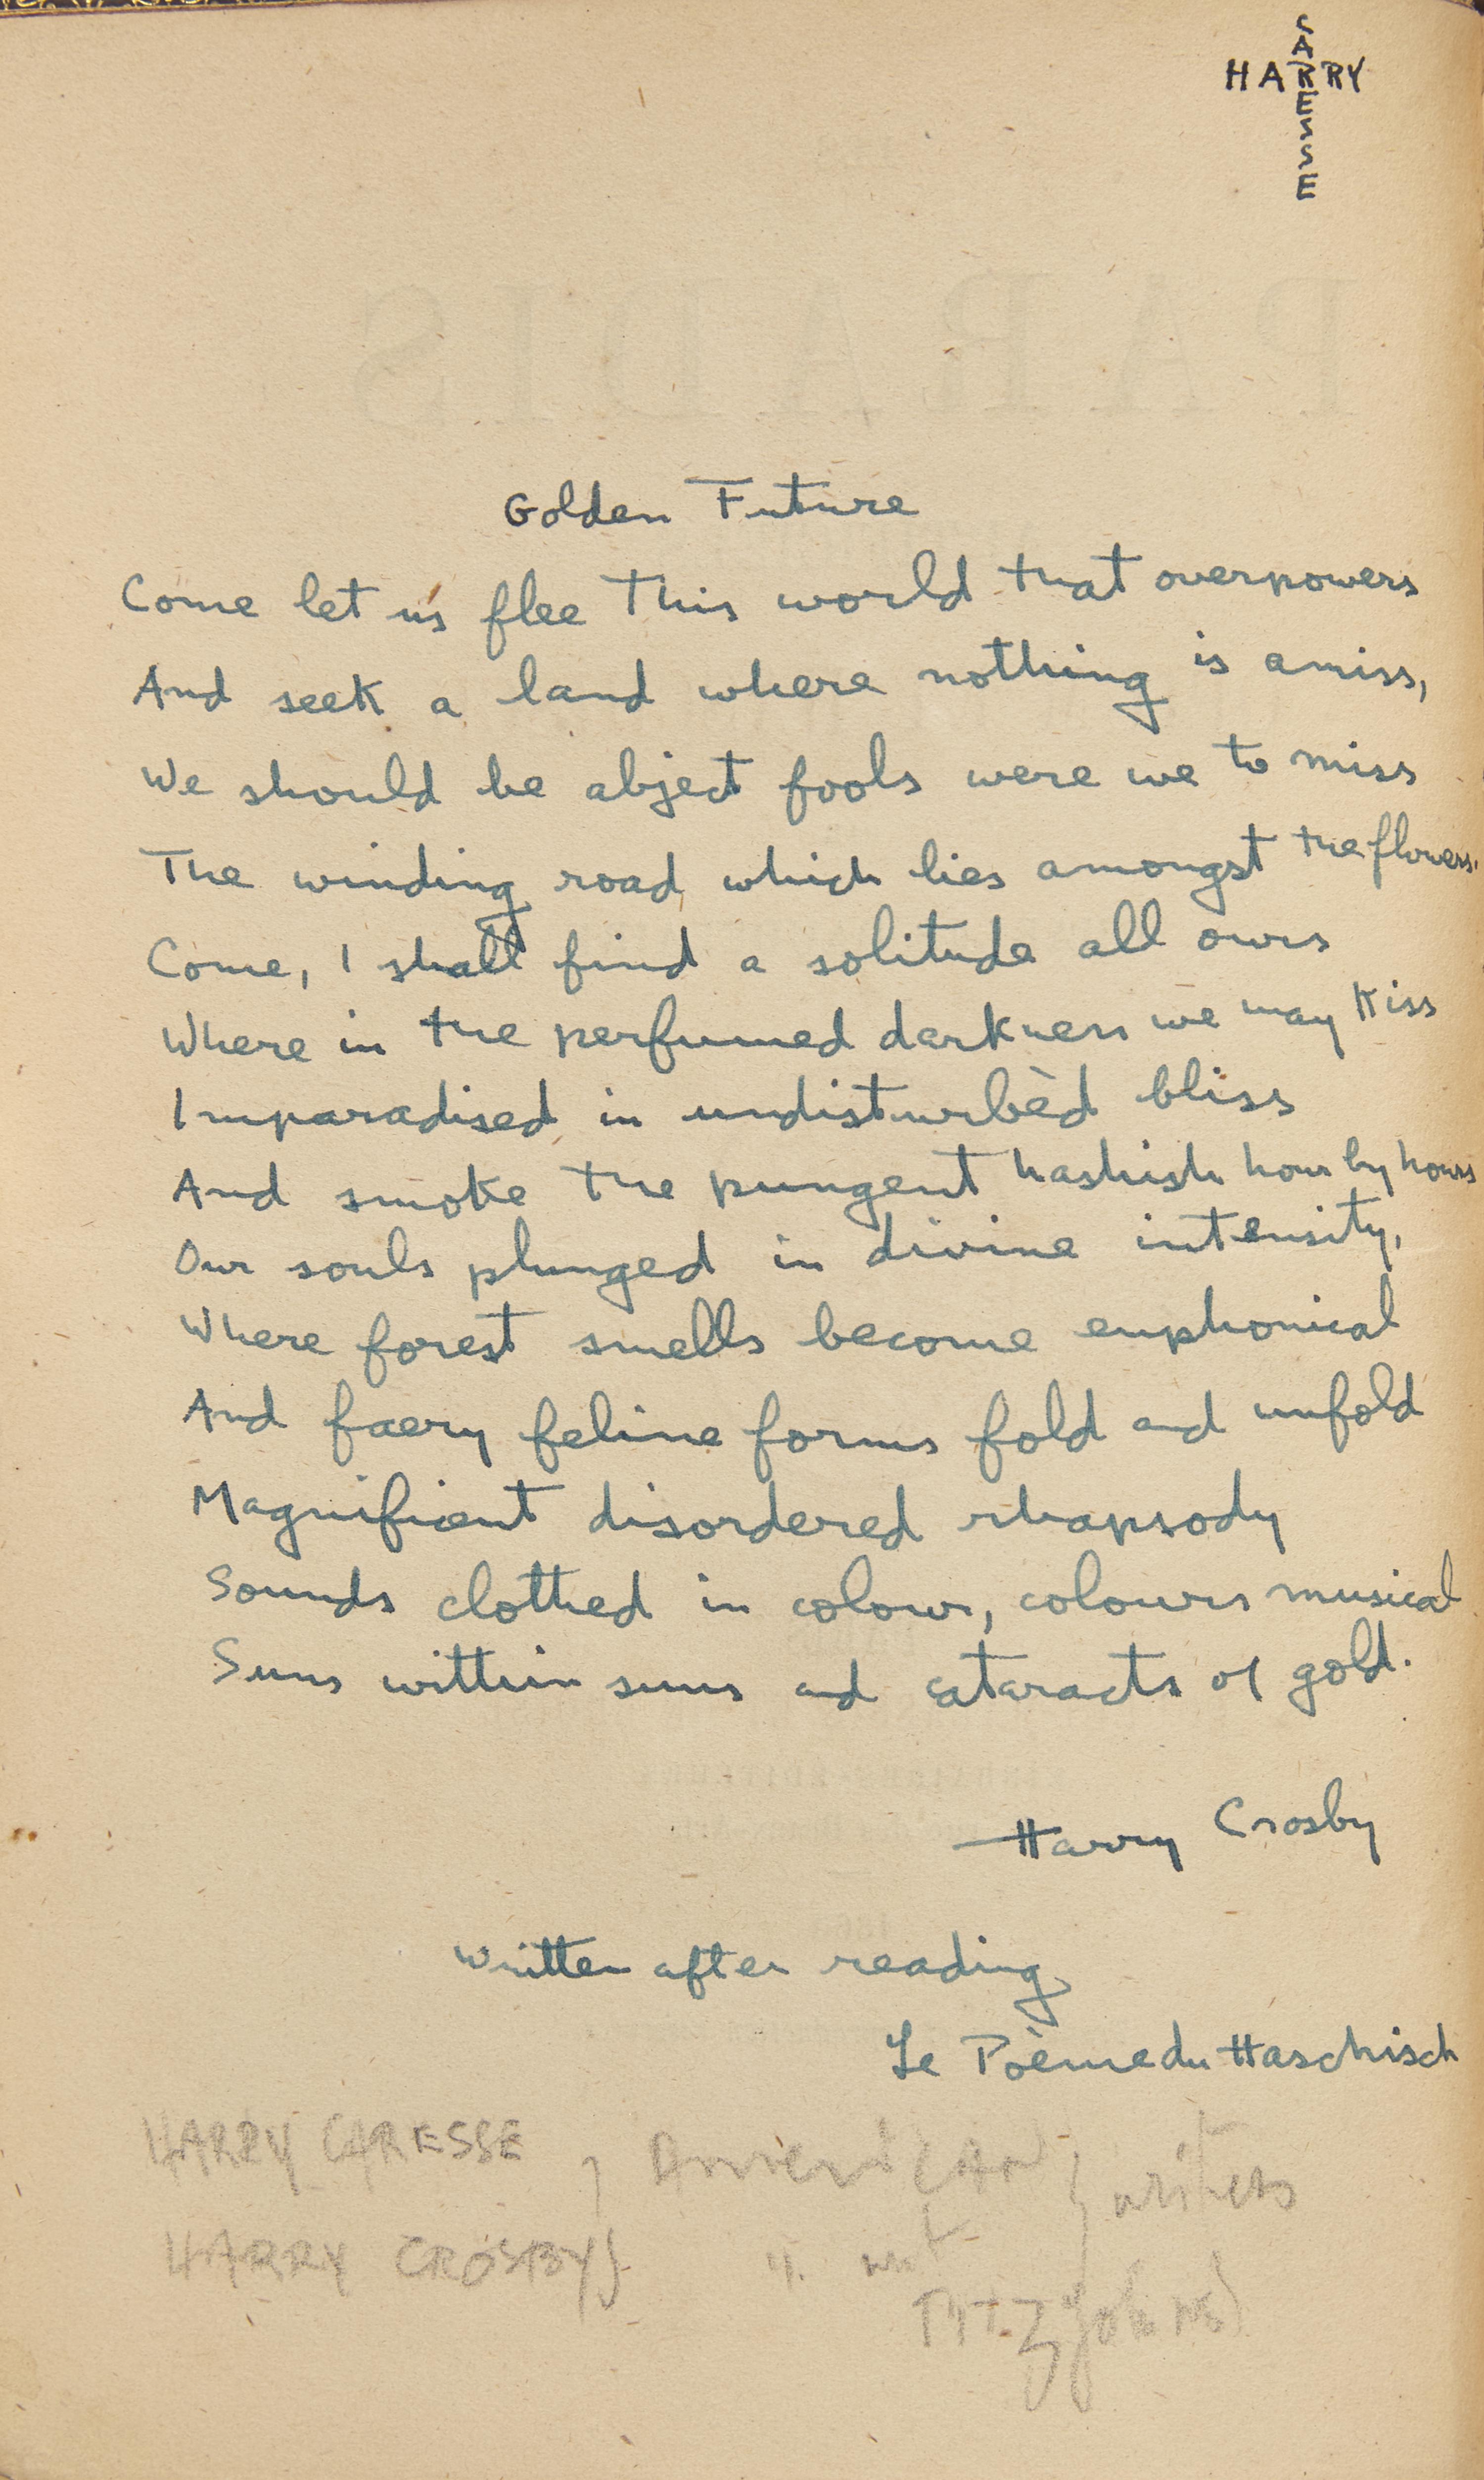 CARESSE
HARRY
Golden Future
Come let us flee this world that overpowers
And seek a land where nothing is amiss,
We should be abject fools were we to miss
The winding road which lies amongst the flowers.
Come, I shall find a solitude all ours
Where in the perfumed darkness we may kiss
Imparadised in undisturbèd bliss
And smoke the pungent hashish hour by hours
Our souls plunged in divine intensity,
Where forest smells become euphonical
And faery feline forms fold and unfold
Magnificent disordered rhapsody
Sounds clothed in colour, colours musical
Suns within suns and cataracts of gold.
Harry Crosby
Written after reading
Le Poème du Haschisch
HARRY CARESSE, American writers
HARRY CROSBY